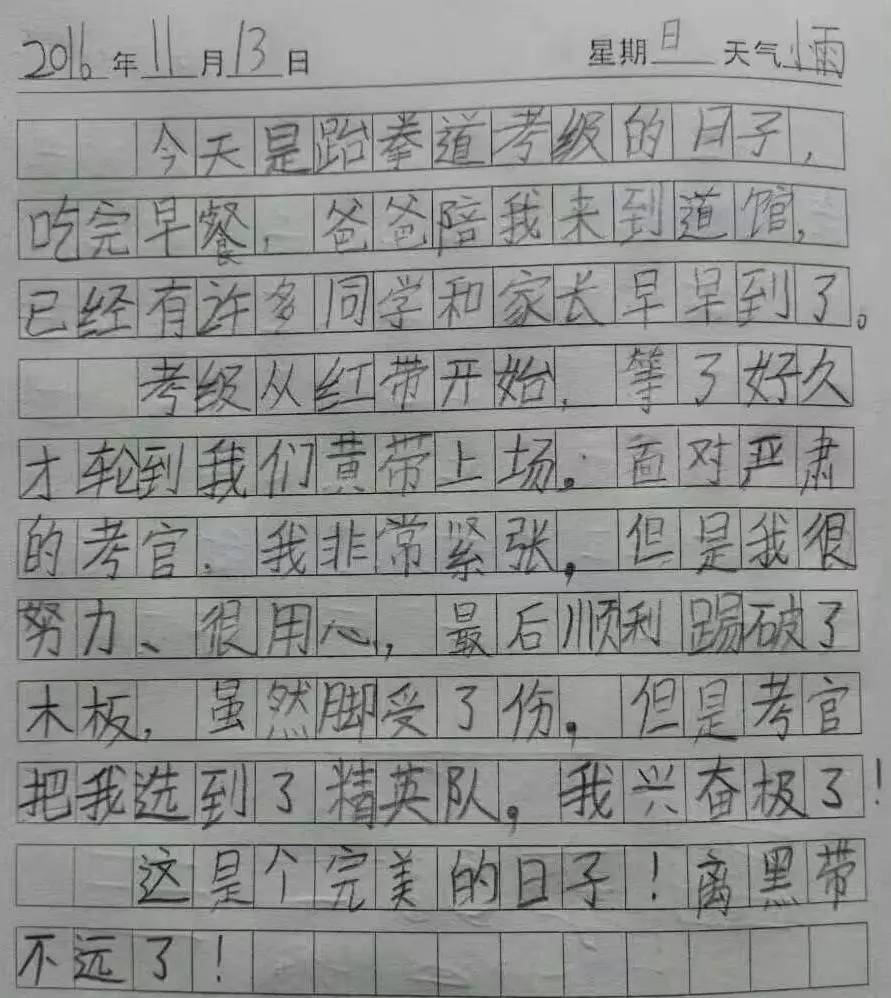 2016年11月13日 星期日 天气小雨
今天是跆拳道考级的日子,
吃完早餐,爸爸陪我来到道馆,
已经有许多同学和家长早早到了。
考级从红带开始,等了好久
才轮到我们黄带上场。面对严肃
的考官,我非常紧张,但是我很
努力、很用心,最后顺利踢破了
木板,虽然脚受了伤,但是考官
把我选到了精英队,我兴奋极了!
这是个完美的日子!离黑带
不远了!